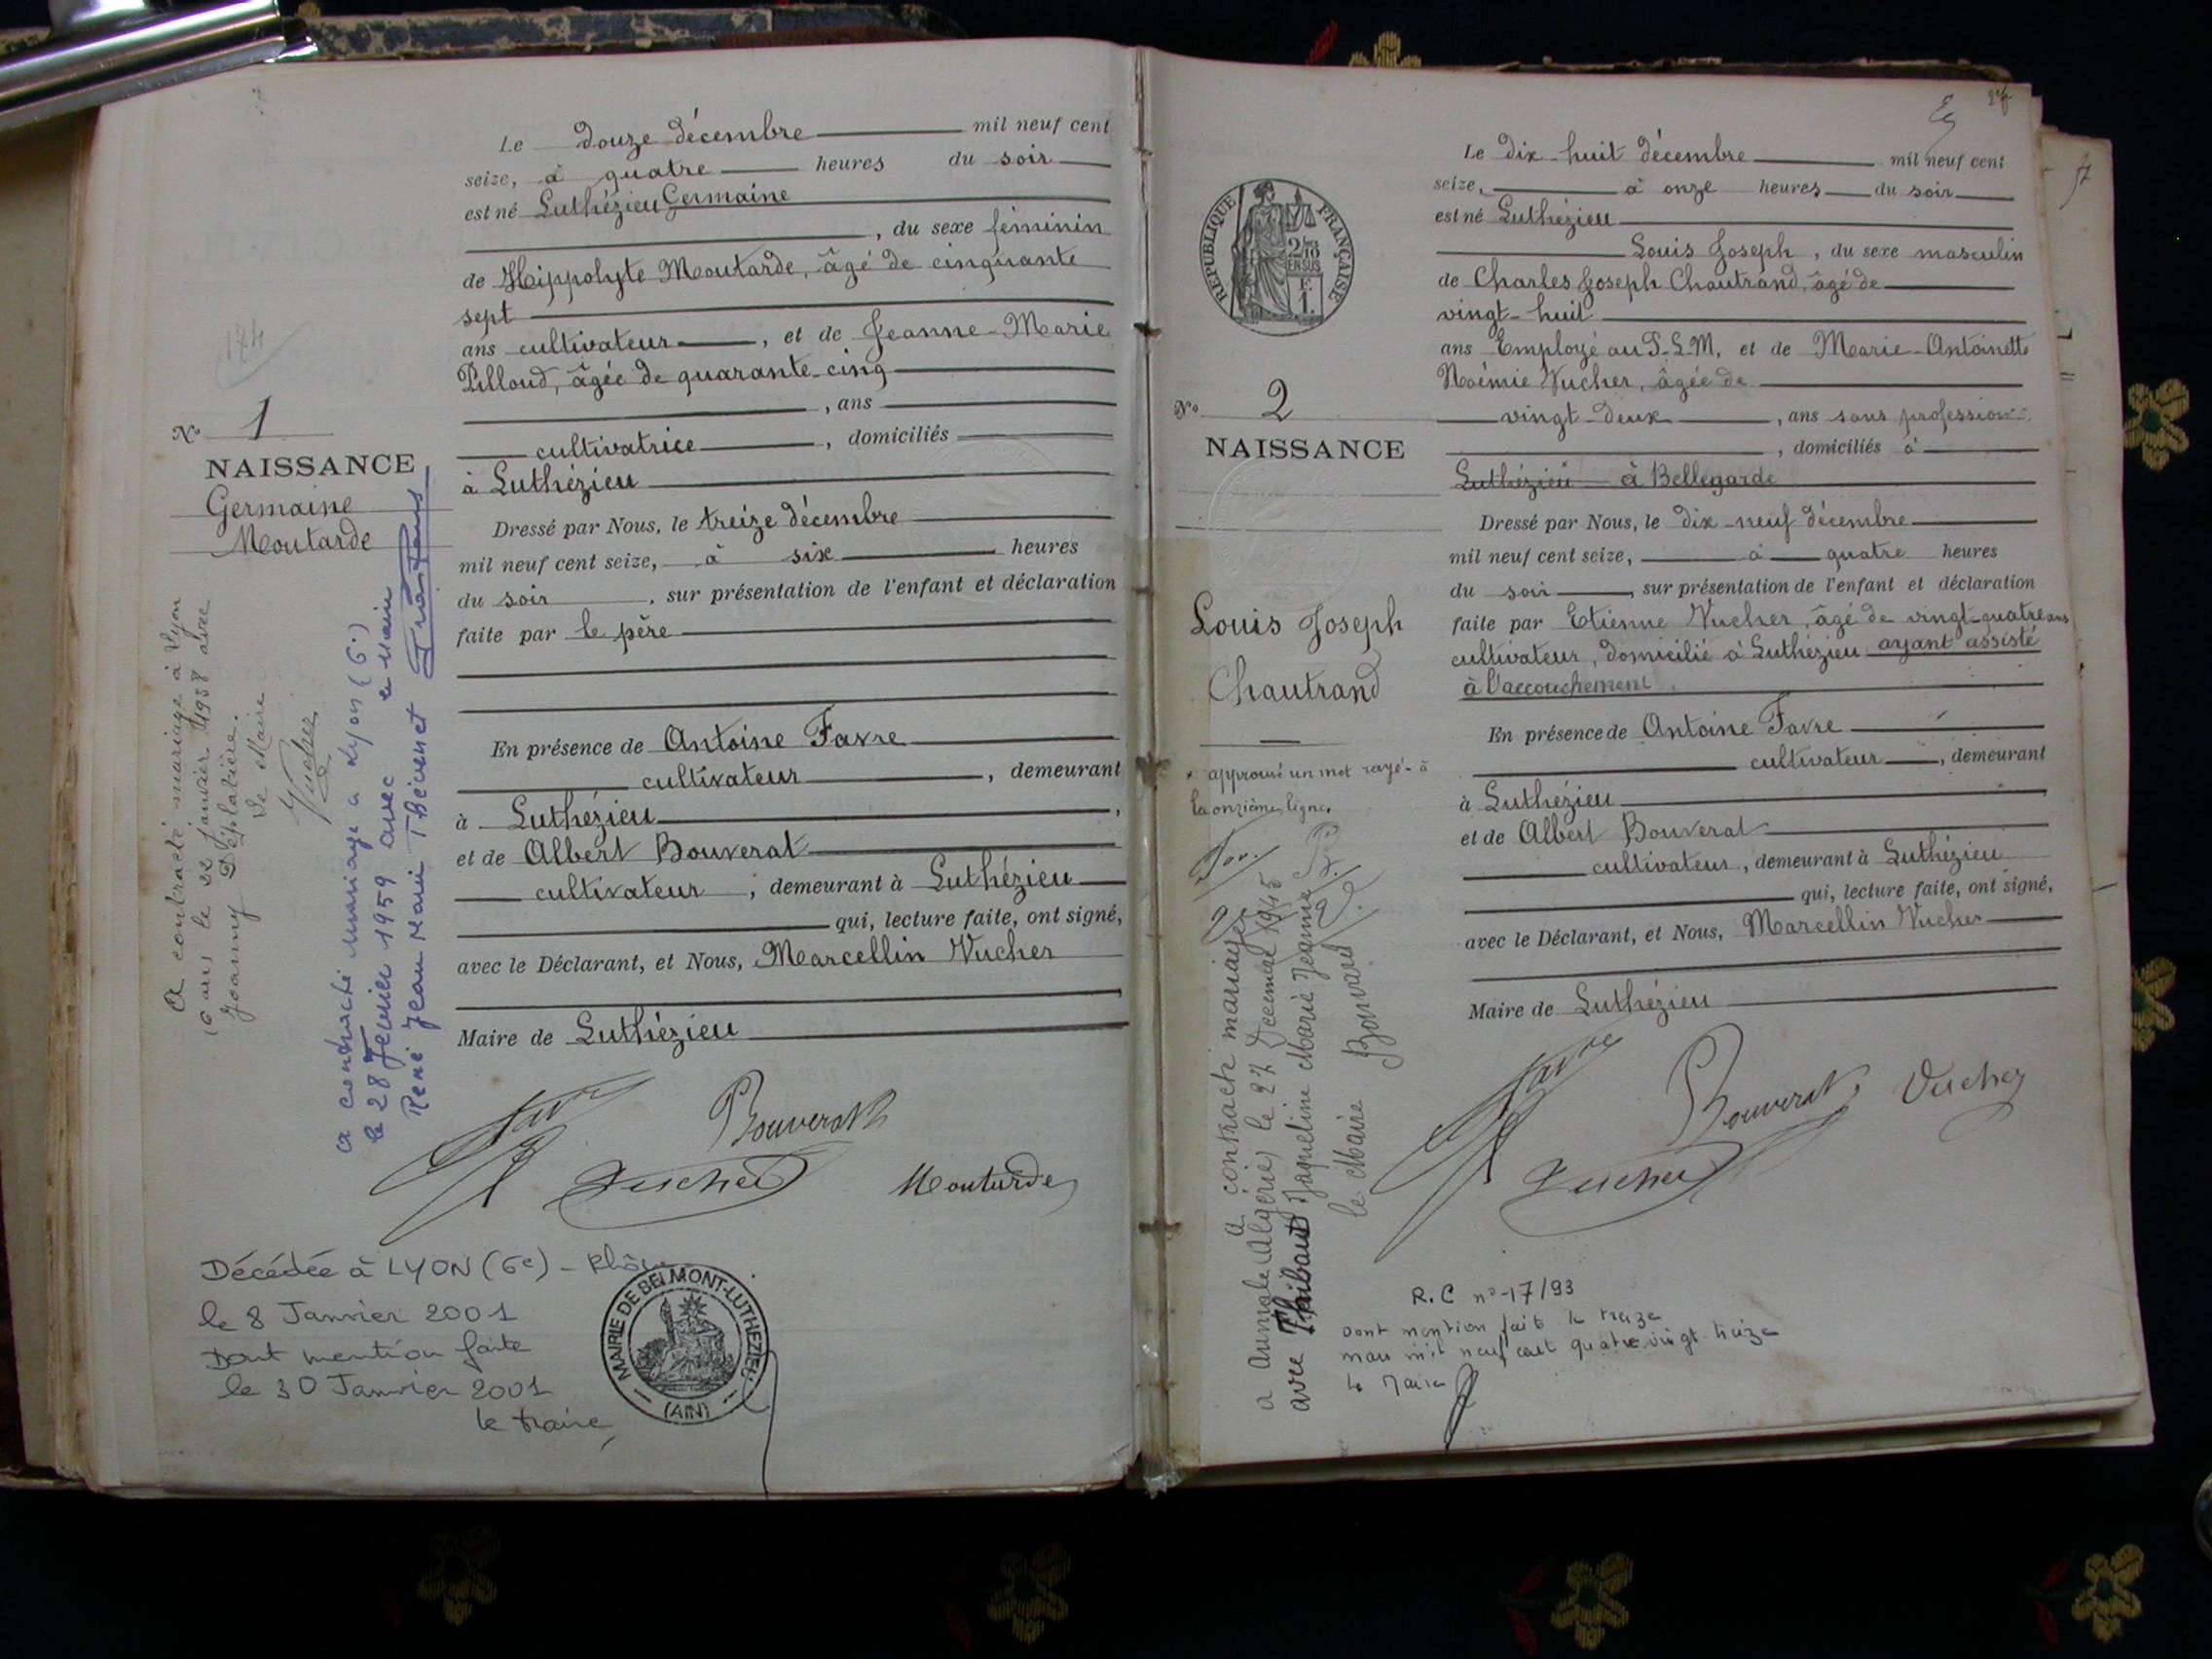 174
N° 1
NAISSANCE
Germaine
Moutarde
Le douze décembre mil neuf cent
seize, à quatre heures du soir
est né Luthézieu Germaine
, du sexe féminin
de Hippolyte Moutarde, âgé de cinquante
sept
ans cultivateur, et de Jeanne-Marie
Pilloud, âgée de quarante-cinq
, ans
cultivatrice, domiciliés
à Luthézieu
Dressé par Nous, le treize décembre
mil neuf cent seize, à six heures
du soir, sur présentation de l'enfant et déclaration
faite par le père
En présence de Antoine Favre
cultivateur, demeurant
à Luthézieu,
et de Albert Bouverat
cultivateur; demeurant à Luthézieu
qui, lecture faite, ont signé,
avec le Déclarant, et Nous, Marcellin Vucher
Maire de Luthézieu
Favre
Bouverat
Vucher
Moutarde
A contracté mariage à Lyon
le 22 janvier 1938 avec
Joanny Déplatière.
Le Maire
Vucher
a contracté mariage a Lyon (6°)
le 28 Fevrier 1959 avec
René Jean Marie Thévenet
le Maire
Décédée à LYON (6e) - Rhône
le 8 Janvier 2001
Dont mention faite
le 30 Janvier 2001
le Maire,
MAIRIE DE BELMONT-LUTHEZIEU
(AIN)
REPUBLIQUE FRANÇAISE
2/10
EN SUS
F.
1.
N° 2
NAISSANCE
Louis Joseph
Chautrand
approuvé un mot rayé à
la onzième ligne.
Le dix-huit décembre mil neuf cent
seize, à onze heures du soir
est né Luthézieu
Louis Joseph, du sexe masculin
de Charles Joseph Chautrand, âgé de
vingt-huit
ans Employé au P-L-M, et de Marie-Antoinette
Noémie Vucher, âgée de
vingt-deux, ans sans profession
, domiciliés à
Luthézieu à Bellegarde
Dressé par Nous, le dix-neuf décembre
mil neuf cent seize, à quatre heures
du soir, sur présentation de l'enfant et déclaration
faite par Etienne Vucher, âgé de vingt-quatre ans
cultivateur, domicilié à Luthézieu ayant assisté
à l'accouchement.
En présence de Antoine Favre
cultivateur, demeurant
à Luthézieu
et de Albert Bouverat
cultivateur, demeurant à Luthézieu
qui, lecture faite, ont signé,
avec le Déclarant, et Nous, Marcellin Vucher
Maire de Luthézieu
Favre
Bouverat
Vucher
Vucher
a contracté mariage
a Aumale (Algérie) le 27 Décembre 1945
avec Thibaut Jaqueline Marie Jeanne
le Maire Bonvard
R.C n° 17/93
Dont mention faite le treize
mars mil neuf cent quatre vingt treize
Le Maire